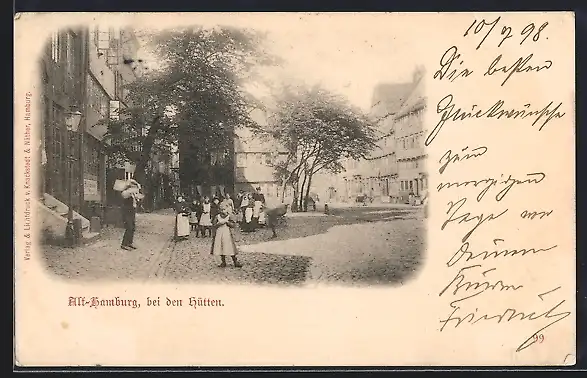 10/7 98.
Die besten
Glückwünsche
zum
morgigen
Tage
Friedrich
Alt-Hamburg, bei den Hütten.
99
Verlag & Lichtdruck v. Knackstedt & Näther, Hamburg.